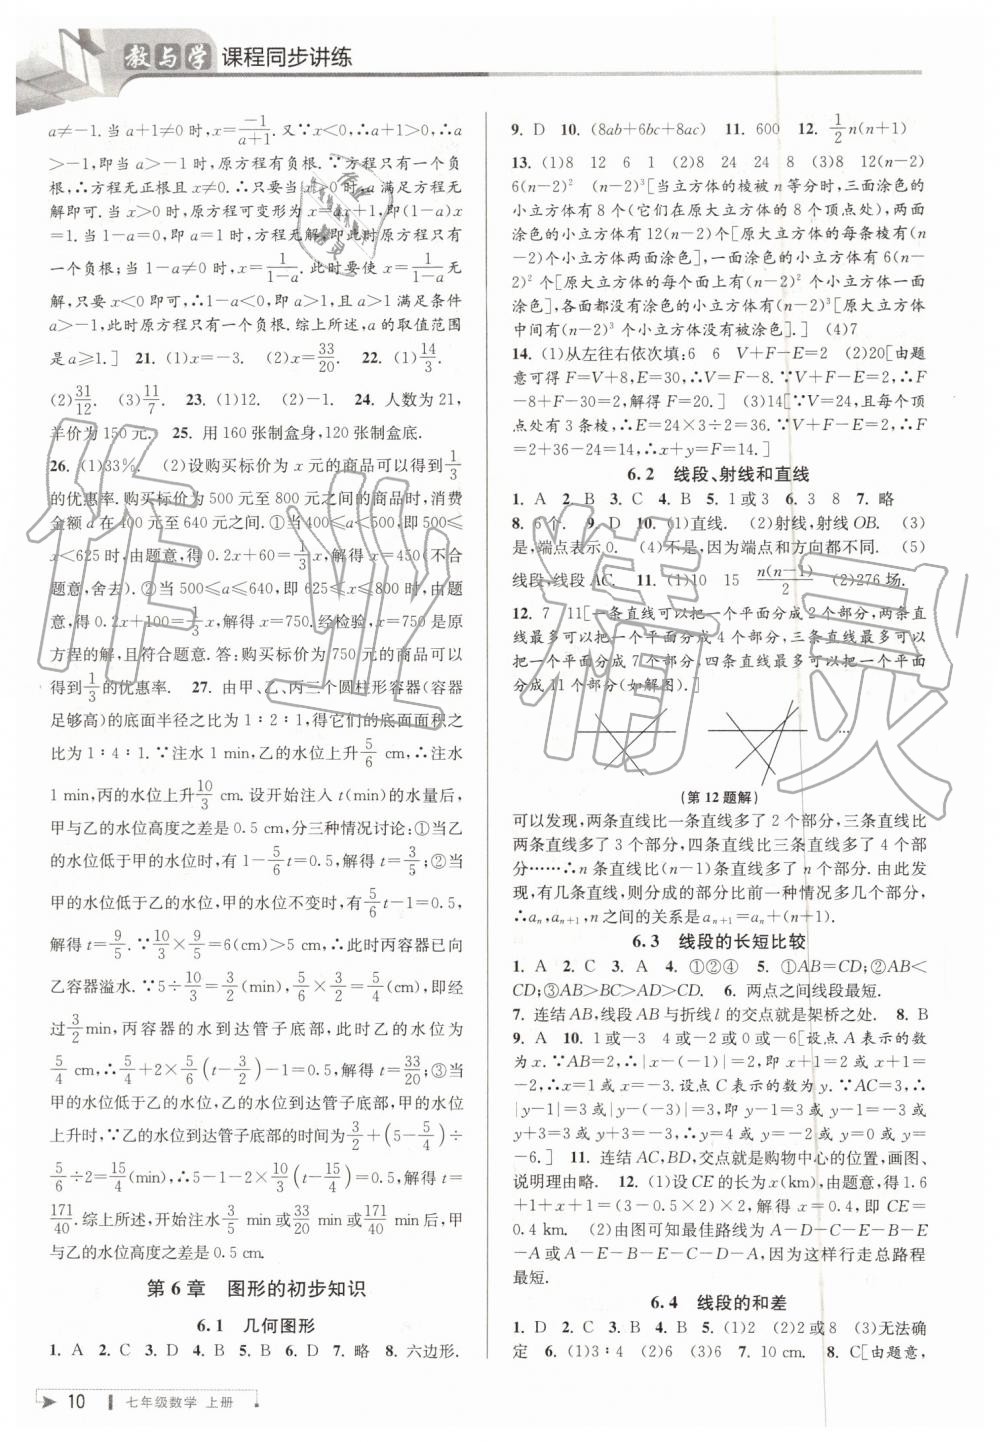 教与学 课程同步讲练
a≠-1. 当 a+1≠0 时,x=-1/(a+1). 又∵x<0,∴a+1>0,∴a
>-1,即当 a>-1 时,原方程有负根.∵原方程有负根,没有正
根,∴方程无正根且 x≠0.∴只要当 x>0 时,a 满足方程无
解即可. 当 x>0 时,原方程可变形为 x=ax+1,即(1-a)x
=1. 当 1-a=0,即 a=1 时,方程无解,即此时原方程只有
一个负根;当 1-a≠0,即 x=1/(1-a). 此时要使 x=1/(1-a)无
解,只要 x<0 即可,∴1-a<0,即 a>1,且 a>1 满足条件
a>-1,此时原方程只有一个负根. 综上所述,a 的取值范围
是 a≥1.] 21. (1)x=-3. (2)x=33/20. 22. (1)14/3.
(2)31/12. (3)11/7. 23. (1)12. (2)-1. 24. 人数为 21,
羊价为 150 元. 25. 用 160 张制盒身,120 张制盒底.
26. (1)33%. (2)设购买标价为 x 元的商品可以得到1/3
的优惠率. 购买标价为 500 元至 800 元之间的商品时,消费
金额 a 在 400 元至 640 元之间. ①当 400≤a<500 时,500≤
x<625 时,由题意,得 0.2x+60=1/3x,解得 x=450(不合
题意,舍去). ②当 500≤a≤640,即 625≤x≤800 时,由题
意,得 0.2x+100=1/3x,解得 x=750. 经检验,x=750 是原
方程的解,且符合题意. 答:购买标价为 750 元的商品可以
得到1/3的优惠率. 27. 由甲、乙、丙三个圆柱形容器(容器
足够高)的底面半径之比为 1∶2∶1,得它们的底面面积之
比为 1∶4∶1.∵注水 1 min,乙的水位上升5/6 cm,∴注水
1 min,丙的水位上升10/3 cm. 设开始注入 t(min)的水量后,
甲与乙的水位高度之差是 0.5 cm,分三种情况讨论:①当乙
的水位低于甲的水位时,有 1-5/6t=0.5,解得 t=3/5;②当
甲的水位低于乙的水位,甲的水位不变时,有5/6t-1=0.5,
解得 t=9/5.∵10/3×9/5=6>5,∴此时丙容器已向
乙容器溢水.∵5÷10/3=3/2(min),5/6×3/2=5/4(cm),即经
过3/2min,丙容器的水到达管子底部,此时乙的水位为
5/4 cm,∴5/4+2×5/6(t-3/2)-1=0.5,解得 t=33/20;③当
甲的水位低于乙的水位,乙的水位到达管子底部,甲的水位
上升时,∵乙的水位到达管子底部的时间为3/2+(5-5/4)÷
5/6÷2=15/4(min),∴5-1-2×10/3(t-15/4)=0.5,解得 t=
171/40. 综上所述,开始注水3/5 min或33/20 min或171/40 min后,甲
与乙的水位高度之差是 0.5 cm.
第 6 章 图形的初步知识
6.1 几何图形
1. A 2. C 3. D 4. B 5. B 6. D 7. 略 8. 六边形.
9. D 10. (8ab+6bc+8ac) 11. 600 12. 1/2n(n+1)
13. (1)8 12 6 1 (2)8 24 24 8 (3)8 12(n-2)
6(n-2)² (n-2)³[当立方体的棱被 n 等分时,三面涂色的
小立方体有 8 个(它们在原大立方体的 8 个顶点处),两面
涂色的小立方体有 12(n-2)个[原大立方体的每条棱有(n
-2)个小立方体两面涂色],一面涂色的小立方体有 6(n-
2)²个[原大立方体的每个面上有(n-2)²个小立方体一面
涂色],各面都没有涂色的小立方体有(n-2)³[原大立方体
中间有(n-2)³ 个小立方体没有被涂色].] (4)7
14. (1)从左往右依次填:6 6 V+F-E=2 (2)20[由题
意可得 F=V+8,E=30,∴V=F-8.∵V+F-E=2,∴F
-8+F-30=2,解得 F=20.] (3)14[∵V=24,且每个顶
点处有 3 条棱,∴E=24×3÷2=36.∵V+F-E=2,∴F
=2+36-24=14,∴x+y=F=14.]
6.2 线段、射线和直线
1. A 2. B 3. C 4. B 5. 1或3 6. 3 8 7. 略
8. 6个. 9. D 10. (1)直线. (2)射线,射线OB. (3)
是,端点表示 0. (4)不是. 因为端点和方向都不同. (5)
线段,线段AC. 11. (1)10 15 n(n-1)/2 (2)276 场.
12. 7 11[一条直线可以把一个平面分成 2 个部分,两条直
线最多可以把一个平面分成 4 个部分,三条直线最多可以把一个
平面分成 7 个部分,四条直线最多可以把一个平面
分成 11 个部分(如解图).]
…
(第 12 题解)
可以发现,两条直线比一条直线多了 2 个部分,三条直线比
两条直线多了 3 个部分,四条直线比三条直线多了 4 个部
分……∴n 条直线比(n-1)条直线多了 n 个部分. 由此发
现,有几条直线,则分成的部分比前一种情况多几个部分,
∴aₙ,aₙ₊₁,n 之间的关系是 aₙ₊₁=aₙ+(n+1).
6.3 线段的长短比较
1. A 2. C 3. A 4. ①②④ 5. ①AB=CD;②AB<
CD;③AB>BC>AD>CD. 6. 两点之间线段最短.
7. 连结AB,线段 AB 与折线 l 的交点就是架桥之处. 8. B
9. A 10. 1或-3 4或-2或0或-6[设点 A 表示的数
为 x.∵AB=2,∴|x-(-1)|=2,即 x+1=2或 x+1=
-2,∴x=1或 x=-3. 设点 C 表示的数为 y.∵AC=3,∴
|y-1|=3或|y-(-3)|=3,即 y-1=3或 y-1=-3或
y+3=3或 y+3=-3,∴y=4或 y=-2或 y=0或 y=
-6.] 11. 连结 AC,BD,交点就是购物中心的位置,画图、
说明理由略. 12. (1)设 CE 的长为 x(km),由题意,得 1.6
+1+x+1=2×(3-0.5×2)×2,解得 x=0.4,即 CE=
0.4 km. (2)由图可知最佳路线为 A-D-C-E-B-E
-A或A-E-B-E-C-D-A,因为这样行走总路程
最短.
6.4 线段的和差
1. D 2. C 3. D 4. B 5. (1)2 (2)2或8 (3)无法确
定 6. (1)3∶4 (2)6 (3)2 7. 2 cm. 8. C[由题意,
10 七年级数学 上册
作业精灵